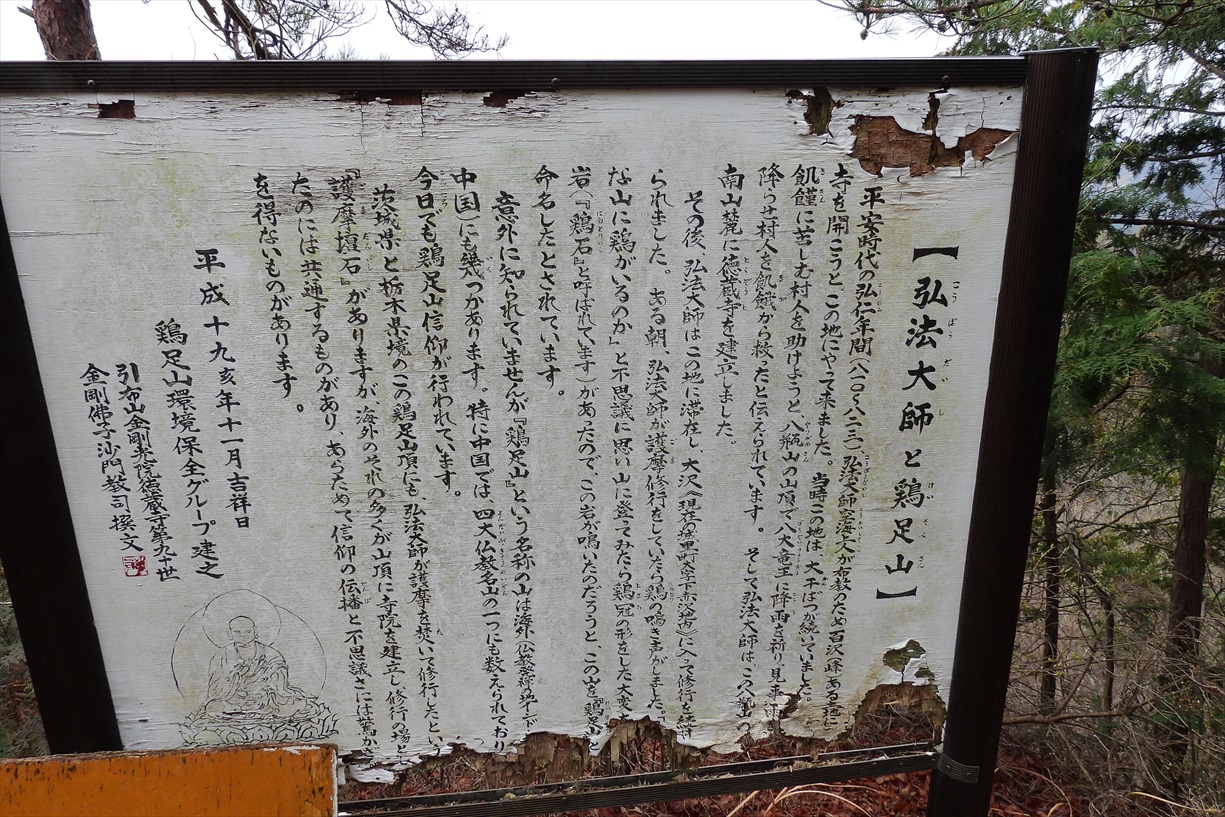 【弘法大師と鶏足山】
平安時代の弘仁年間(八一〇〜八二三)、弘法大師空海上人が布教のため百沢 峰ある這に
寺を開こうと、この地にやって来ました。当時この地は、大干ばつが続いていました
飢饉に苦しむ村人を助けようと、八瓶山の山頂で八大竜王に降雨を祈り、見事
降らせ村人を飢餓から救ったと伝えられています。そして弘法大師はこの八瓶山
南山麓に徳蔵寺を建立しました。
その後、弘法大師はこの地に滞在し、大沢(現在の城里町大字赤沢地内)に入って修行を続け
られました。ある朝、弘法大師が護摩修行をしていたら鶏の鳴き声がしました。
な山に鶏がいるのか」と不思議に思い山に登ってみたら鶏冠の形をした大変
岩(『鶏石』と呼ばれています)があったので、この岩が鳴いたのだろうと、この山を『鶏足と
命名したとされています。
意外に知られていませんが『鶏足山』という名称の山は海外(仏教発祥の地インド
中国)にも幾つかあります。特に中国では、四大仏教名山の一つにも数えられており
今日でも鶏足山信仰が行われています。
茨城県と栃木県境のこの鶏足山頂にも、弘法大師が護摩を焚いて修行したという
『護摩壇石』がありますが、海外のそれの多くが山頂に寺院を建立し修行の場と
たのには共通するものがあり、あらためて信仰の伝播と不思議さには驚か
を得ないものがあります。
平成十九亥年十一月吉祥日
鶏足山環境保全グループ建之
引布山金剛光院徳蔵寺第九十世
金剛佛子沙門教司撰文